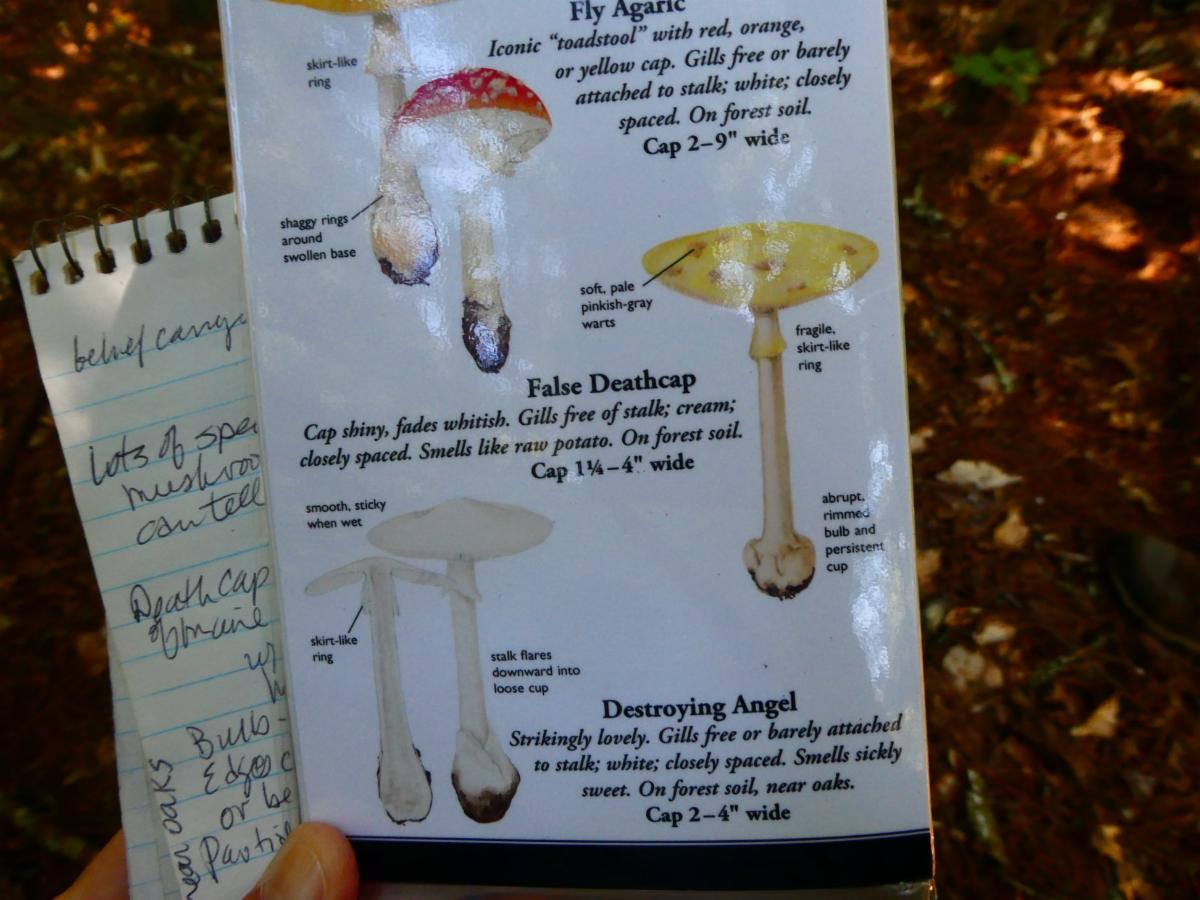 Fly Agaric
Iconic “toadstool” with red, orange,
or yellow cap. Gills free or barely
attached to stalk; white; closely
spaced. On forest soil.
Cap 2–9" wide
skirt-like
ring
shaggy rings
around
swollen base
soft, pale
pinkish-gray
warts
fragile,
skirt-like
ring
abrupt,
rimmed
bulb and
persistent
cup
False Deathcap
Cap shiny, fades whitish. Gills free of stalk; cream;
closely spaced. Smells like raw potato. On forest soil.
Cap 1¼–4" wide
smooth, sticky
when wet
skirt-like
ring
stalk flares
downward into
loose cup
Destroying Angel
Strikingly lovely. Gills free or barely attached
to stalk; white; closely spaced. Smells sickly
sweet. On forest soil, near oaks.
Cap 2–4" wide
Lots of
can tell
Death cap
Bulb-
Edges
or be
oaks